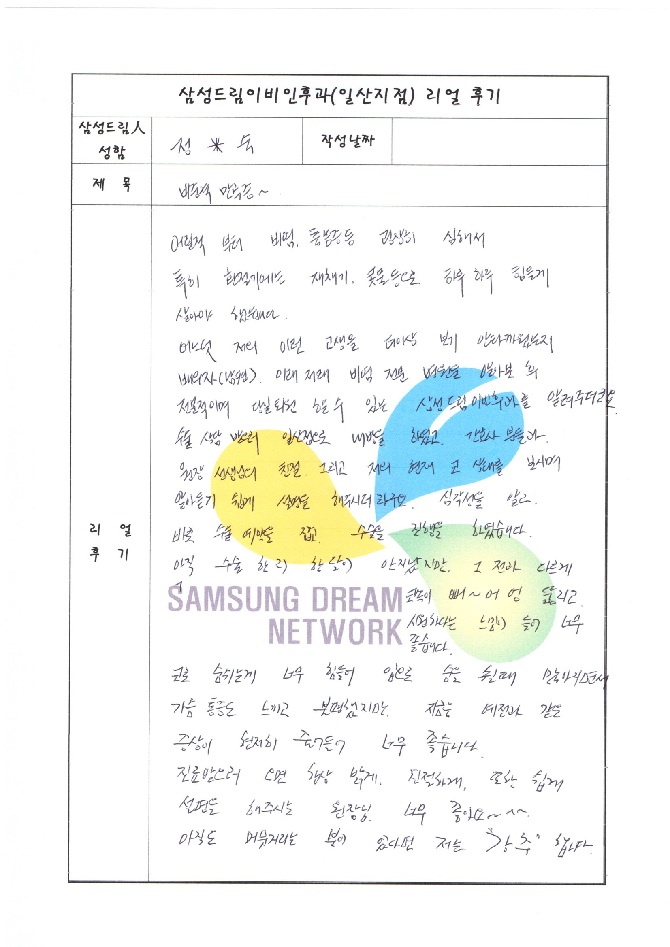 삼성드림이비인후과(일산지점) 리얼 후기
삼성드림人
성함
정 ※ 숙
작성날짜
제 목
비도덕 만족중~
어린적 부터 비염, 통증등등 현상이 심해서
특히 환절기에는 재채기, 콧물등으로 하루 하루 힘들게
살아야 했습니다.
어느덧 저의 이런 고생을 더이상 보기 안타까웠던지
배우자(남편), 이래저래 비염 전문 병원을 알아본 후
전문적이며 당일퇴원 할 수 있는 삼성드림이비인후과를 알려주더라고요.
수술 상담 받으러 일산점으로 내방을 하였고, 간호사 분들과,
원장 선생님의 친절 그리고 저의 현재 코 상태를 보시며
알아듣기 쉽게 설명을 해주시더라구요. 심각성을 알고
바로 수술 예약을 잡고 수술을 진행을 하였습니다.
아직 수술 한지 한달이 안지났지만, 그 전과 다르게
코속이 뻐~어 엉 뚫리고
시원하다는 느낌이 들어 너무
좋습니다.
SAMSUNG DREAM
NETWORK
리 얼
후 기
코로 숨쉬는게 너무 힘들어 입으로 숨을 쉴때
가슴 통증도 느끼고 불편했지만, 지금은 예전과 같은
증상이 현저히 줄어들어 너무 좋습니다.
진료받으러 오면 항상 밝게, 친절하게, 또한 쉽게
설명을 해주시는 원장님 너무 좋아요~^^
아직도 머뭇거리는 분이 있다면 저는 "강추" 합니다.